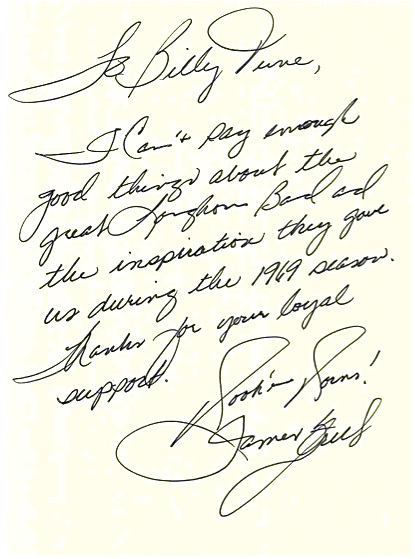 To Billy
I Can't say enough
good things about the
great Longhorn Band and
the inspiration they gave
us during the 1969 season.
Thanks for your loyal
support.
Hook'em Horns!
James Street